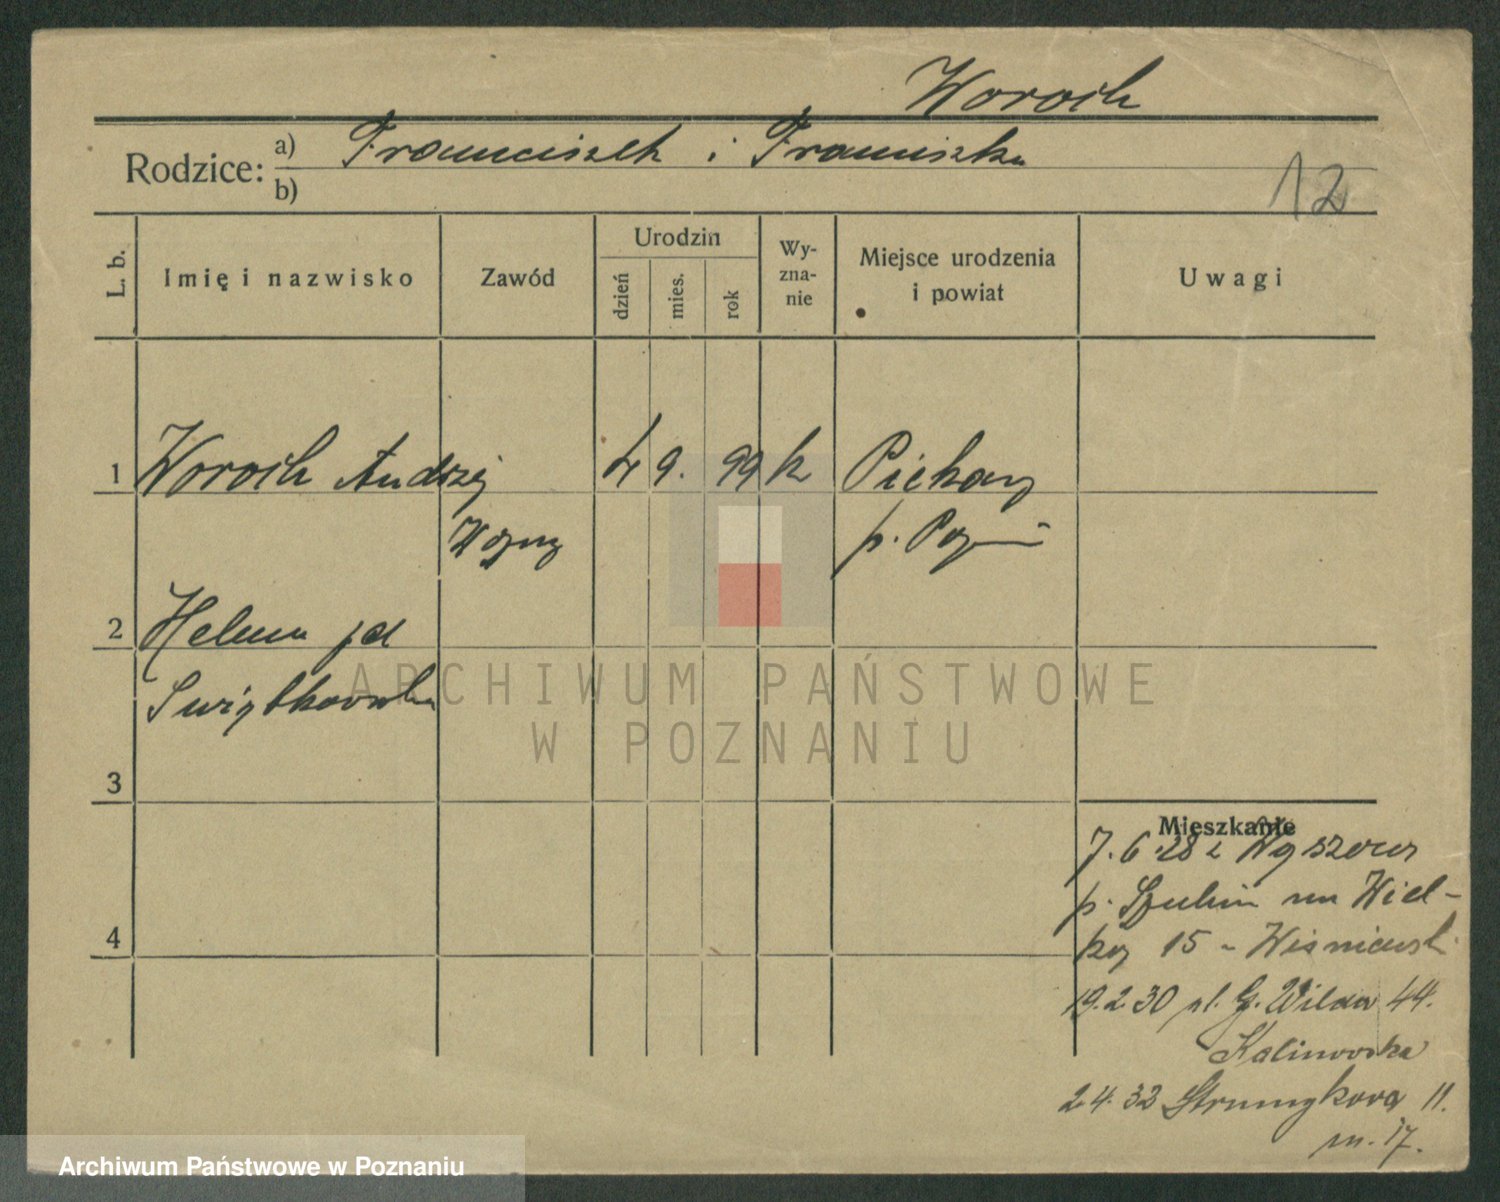 Woroch
Rodzice: a) Franciszek i Franciszka
b)
12
L. b. Imię i nazwisko Zawód Urodzin dzień mies. rok Wy-zna-nie Miejsce urodzenia i powiat Uwagi
1 Woroch Andrzej 4 9. 99 k Piekary
Woźny p. Pozn
2 Helena
Swiątkowska
ARCHIWUM PAŃSTWOWE
W POZNANIU
3
Mieszkanie
7.6.28 z
p. Szubin na Wiel-
4
15 - Wiśniewsk
19.2.30 G. Wilda 44.
Kalinowska
2 4. 32 Strumykowa 11.
m. 17.
Archiwum Państwowe w Poznaniu